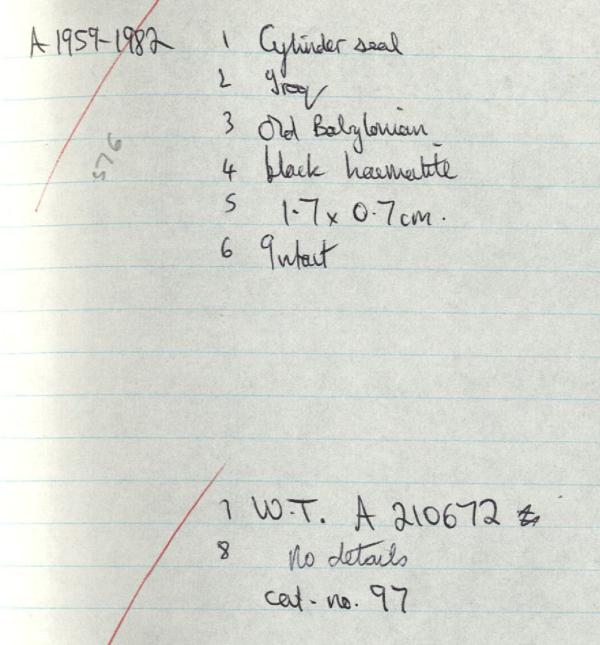 A 1959-1982 1 Cylinder seal
2 Iraq
3 Old Babylonian
576
4 black haematite
5 1.7 x 0.7 cm.
6 Intact
7 W.T. A 210672
8 No details
cat. no. 97